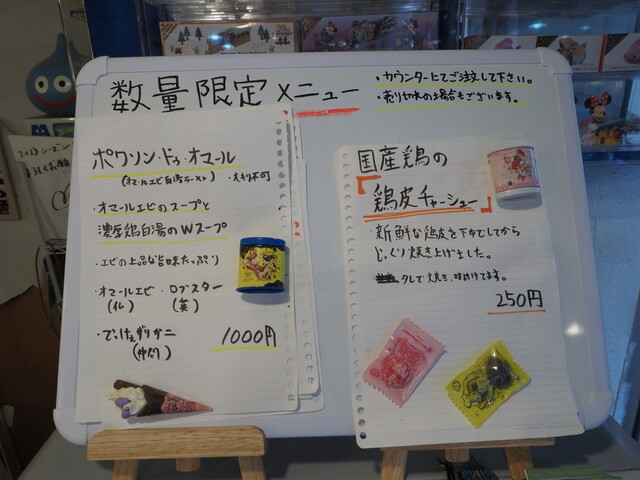 数量限定メニュー
・カウンターにてご注文して下さい。
・売り切れの場合もございます。
ポワソン・ドゥ・オマール
・大利不可
・オマールエビのスープと
濃厚鶏白湯のWスープ
・エビの上品な旨味たっぷり
・オマールエビ・ロブスター
(仏) (英)
・でっけぇザリガニ
1000円
国産鶏の
「鶏皮チャーシュー」
・新鮮な鶏皮を下ゆでしてから
じっくり焼き上げました。
タレで焼き、味付けてます。
250円